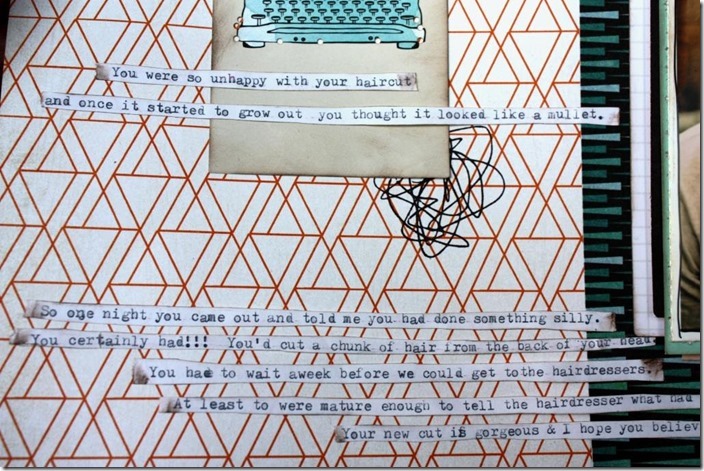 You were so unhappy with your haircut
and once it started to grow out you thought it looked like a mullet.
So one night you came out and told me you had done something silly.
You certainly had!!! You'd cut a chunk of hair irom the back of your head.
You had to wait aweek before we could get tothe hairdressers.
At least to were mature enough to tell the hairdresser what had
Your new cut is gorgeous & I hope you believ